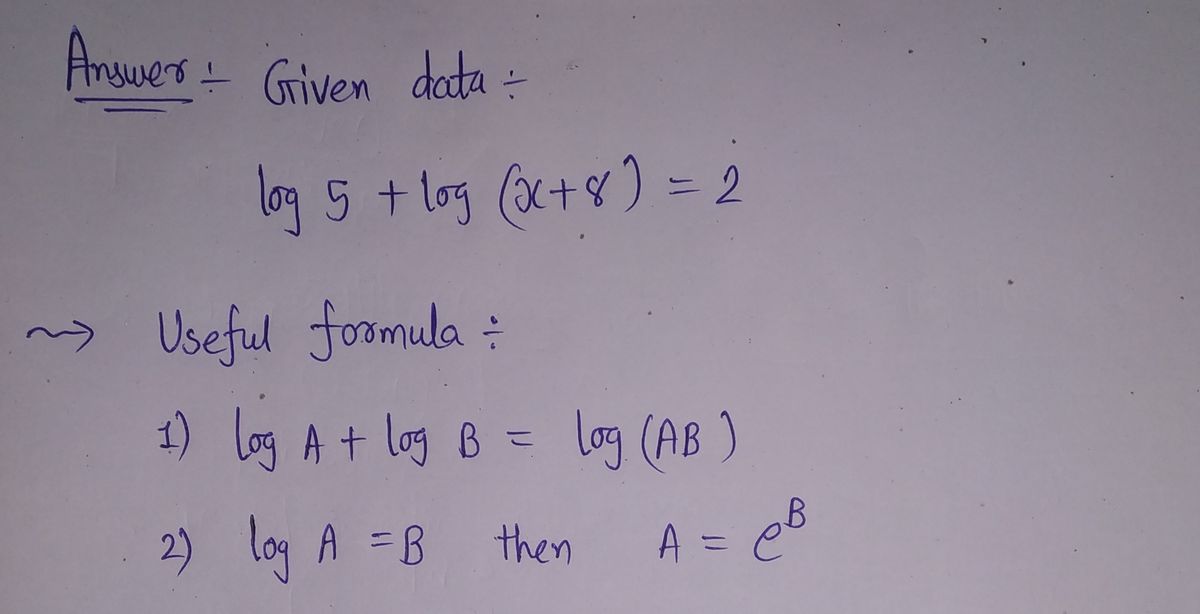 Answer ÷ Given data ÷
log 5 + log (x+8) = 2
⇝ Useful formula ÷
1) log A + log B = log (AB)
2) log A = B then A = e^B